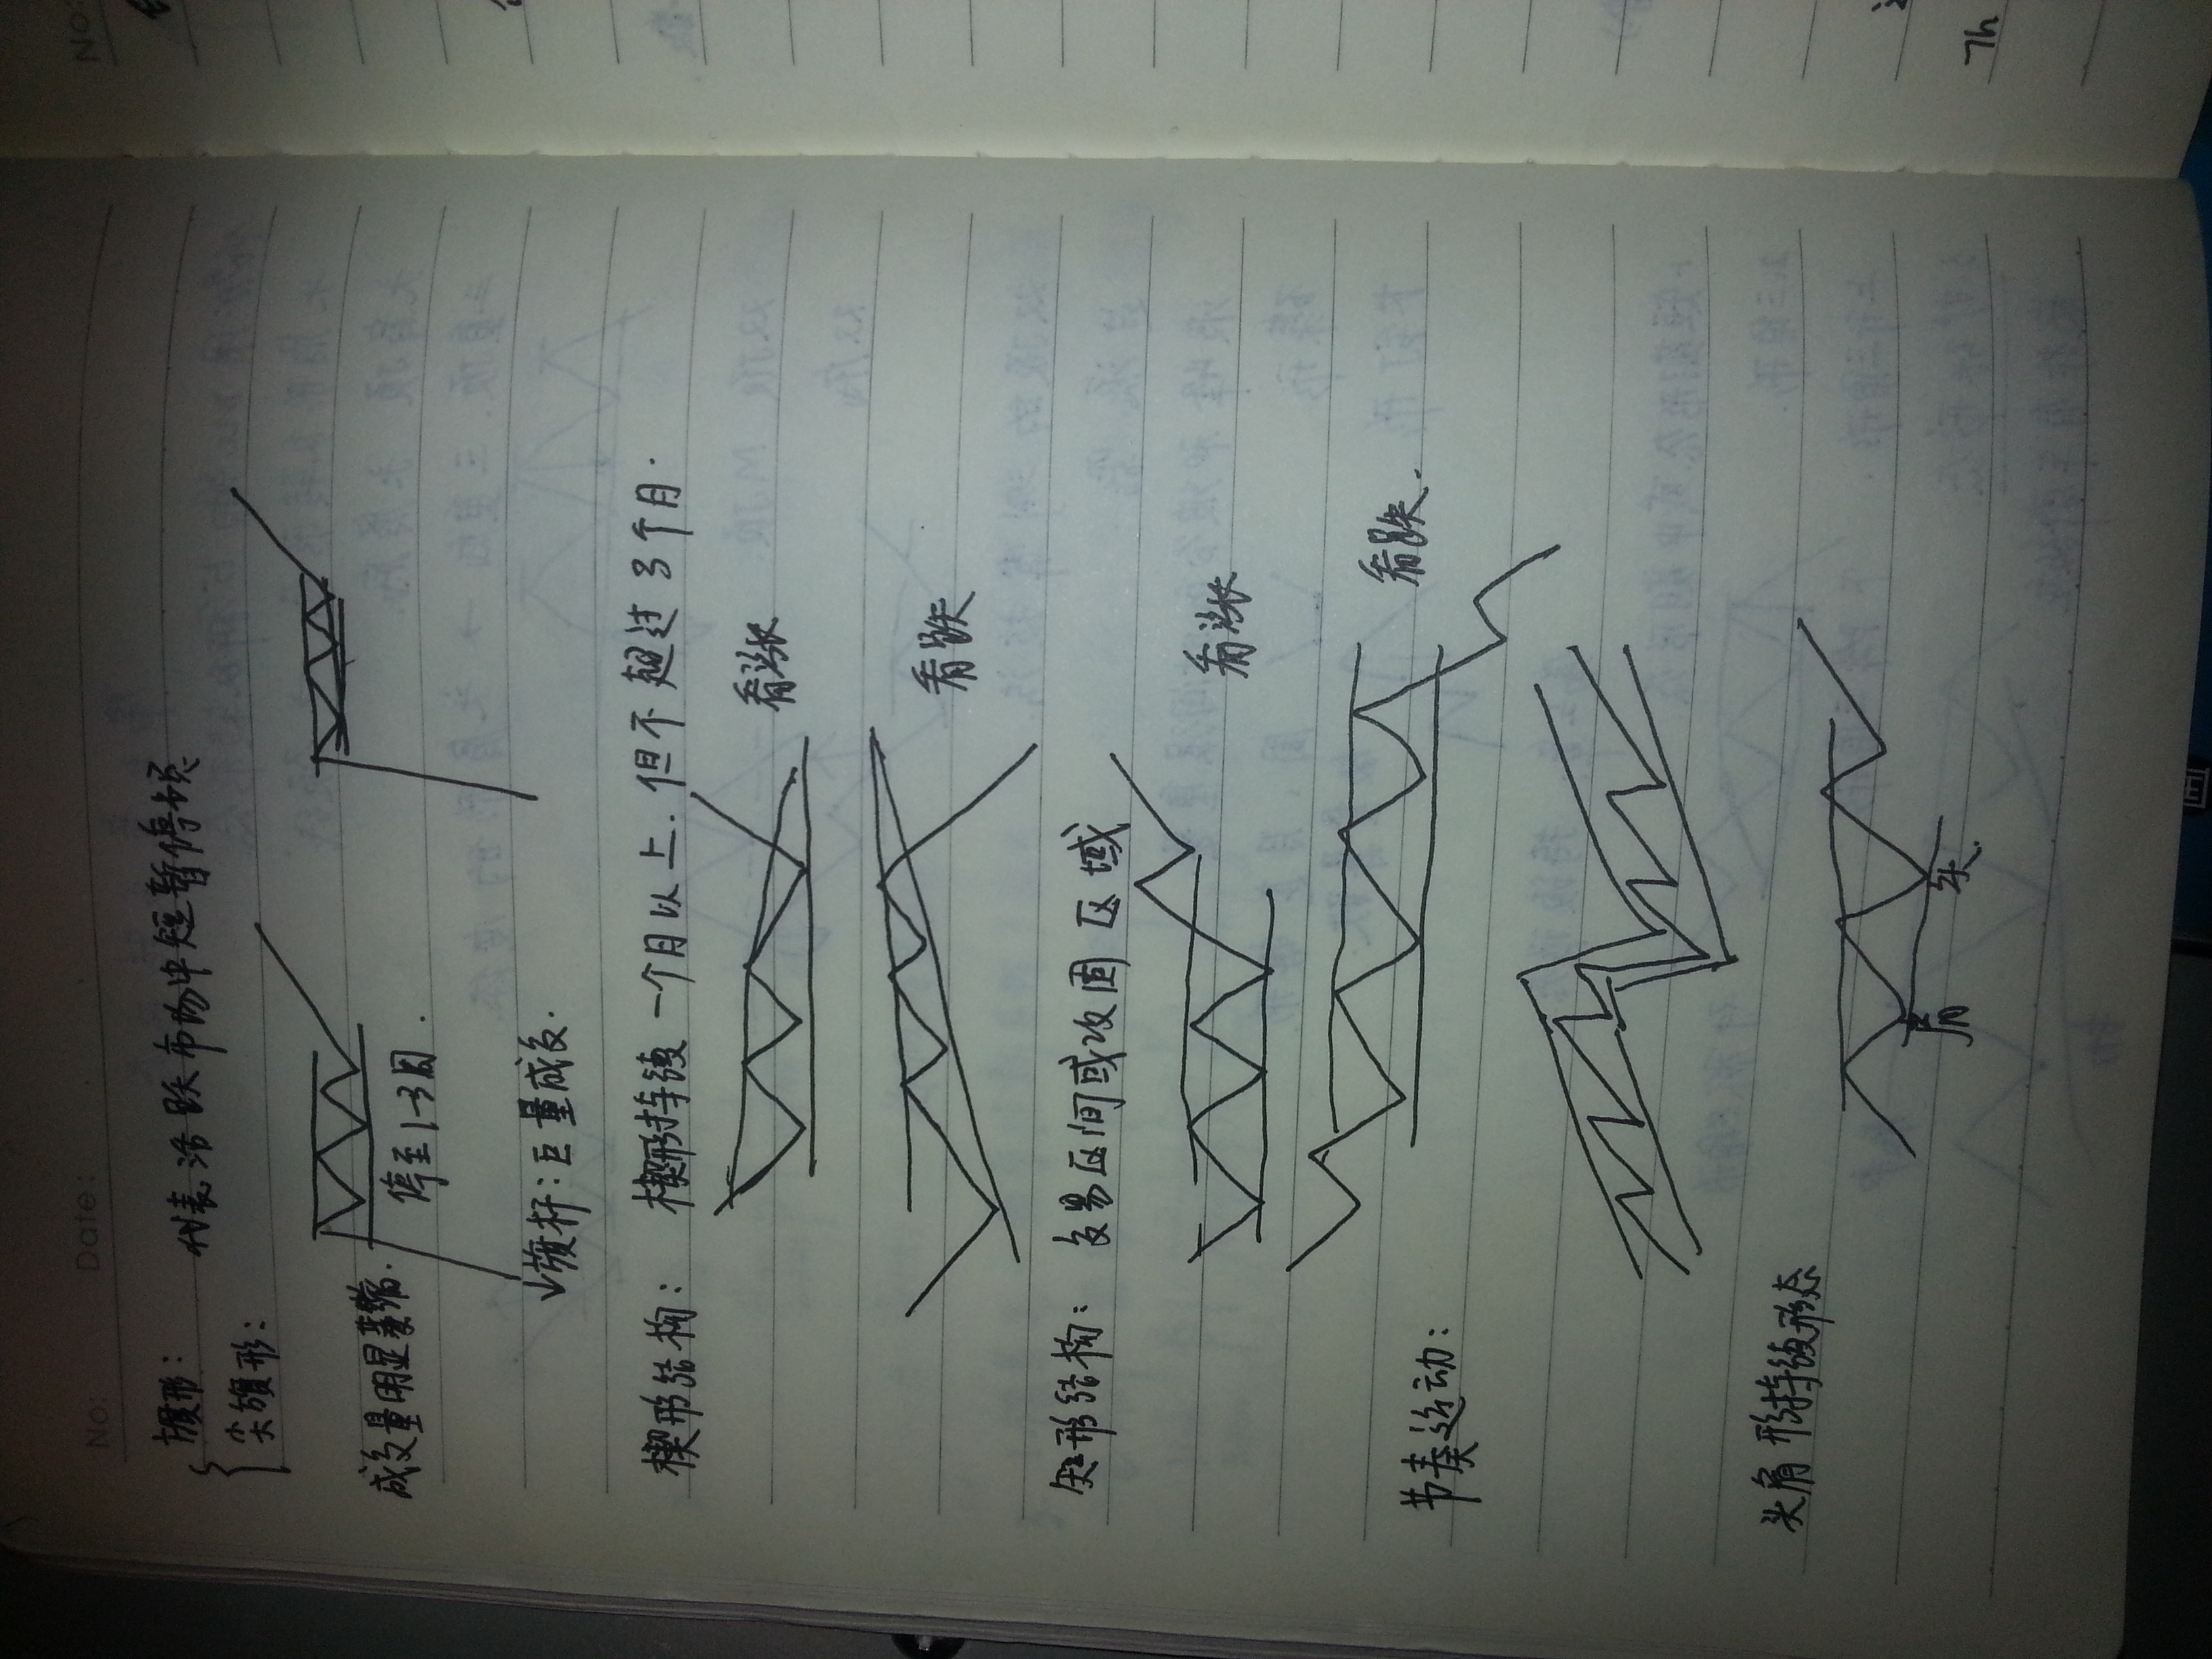 No: Date:
旗形: 代表活跃市场中短暂停顿
尖旗形:
成交量明显萎缩.
停至1-3周.
旗杆:巨量成交.
楔形结构: 楔形持续一个月以上.但不超过3个月.
看涨
看跌
矩形结构: 交易区间或攻固区域
看涨
看跌.
节奏运动:
头肩形持续形态
肩 头.
No:
7h